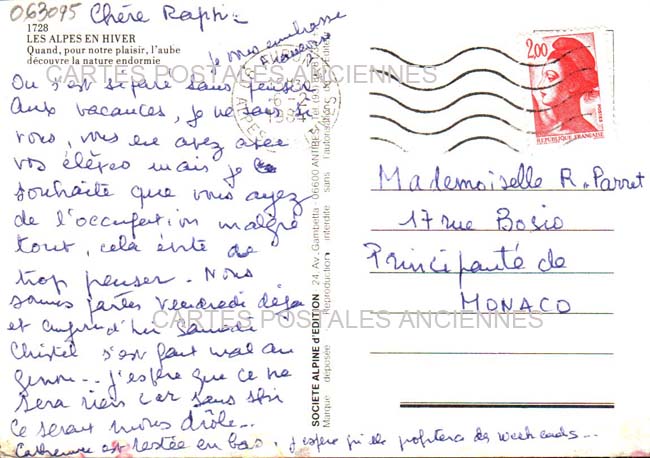 063095
Chère Raph
1728
LES ALPES EN HIVER
Quand, pour notre plaisir, l'aube
découvre la nature endormie
je vous embrasse
CARTES POSTALES ANCIENNES
On s'est séparé sans penser
aux vacances, je ne sais si
vous, vous en avez avec
vos élèves mais je
souhaite que vous ayez
de l'occupation malgré
tout, cela évite de
trop penser. Nous
sommes parties vendredi déjà
et aujourd'hui samedi
Christel s'est fait mal au
genou... j'espère que ce ne
sera rien car sans ski
ce serait moins drôle...
Catherine est restée en bas, j'espère qu'elle profitera des week-ends...
SOCIETE ALPINE d'EDITION - 24, Av. Gambetta - 06600 ANTIBES
Marque déposée Reproduction interdite sans l'autorisation
2,00
REPUBLIQUE FRANÇAISE
Mademoiselle R. Parret
17 rue Bosio
Principauté de
MONACO
CARTES POSTALES ANCIENNES